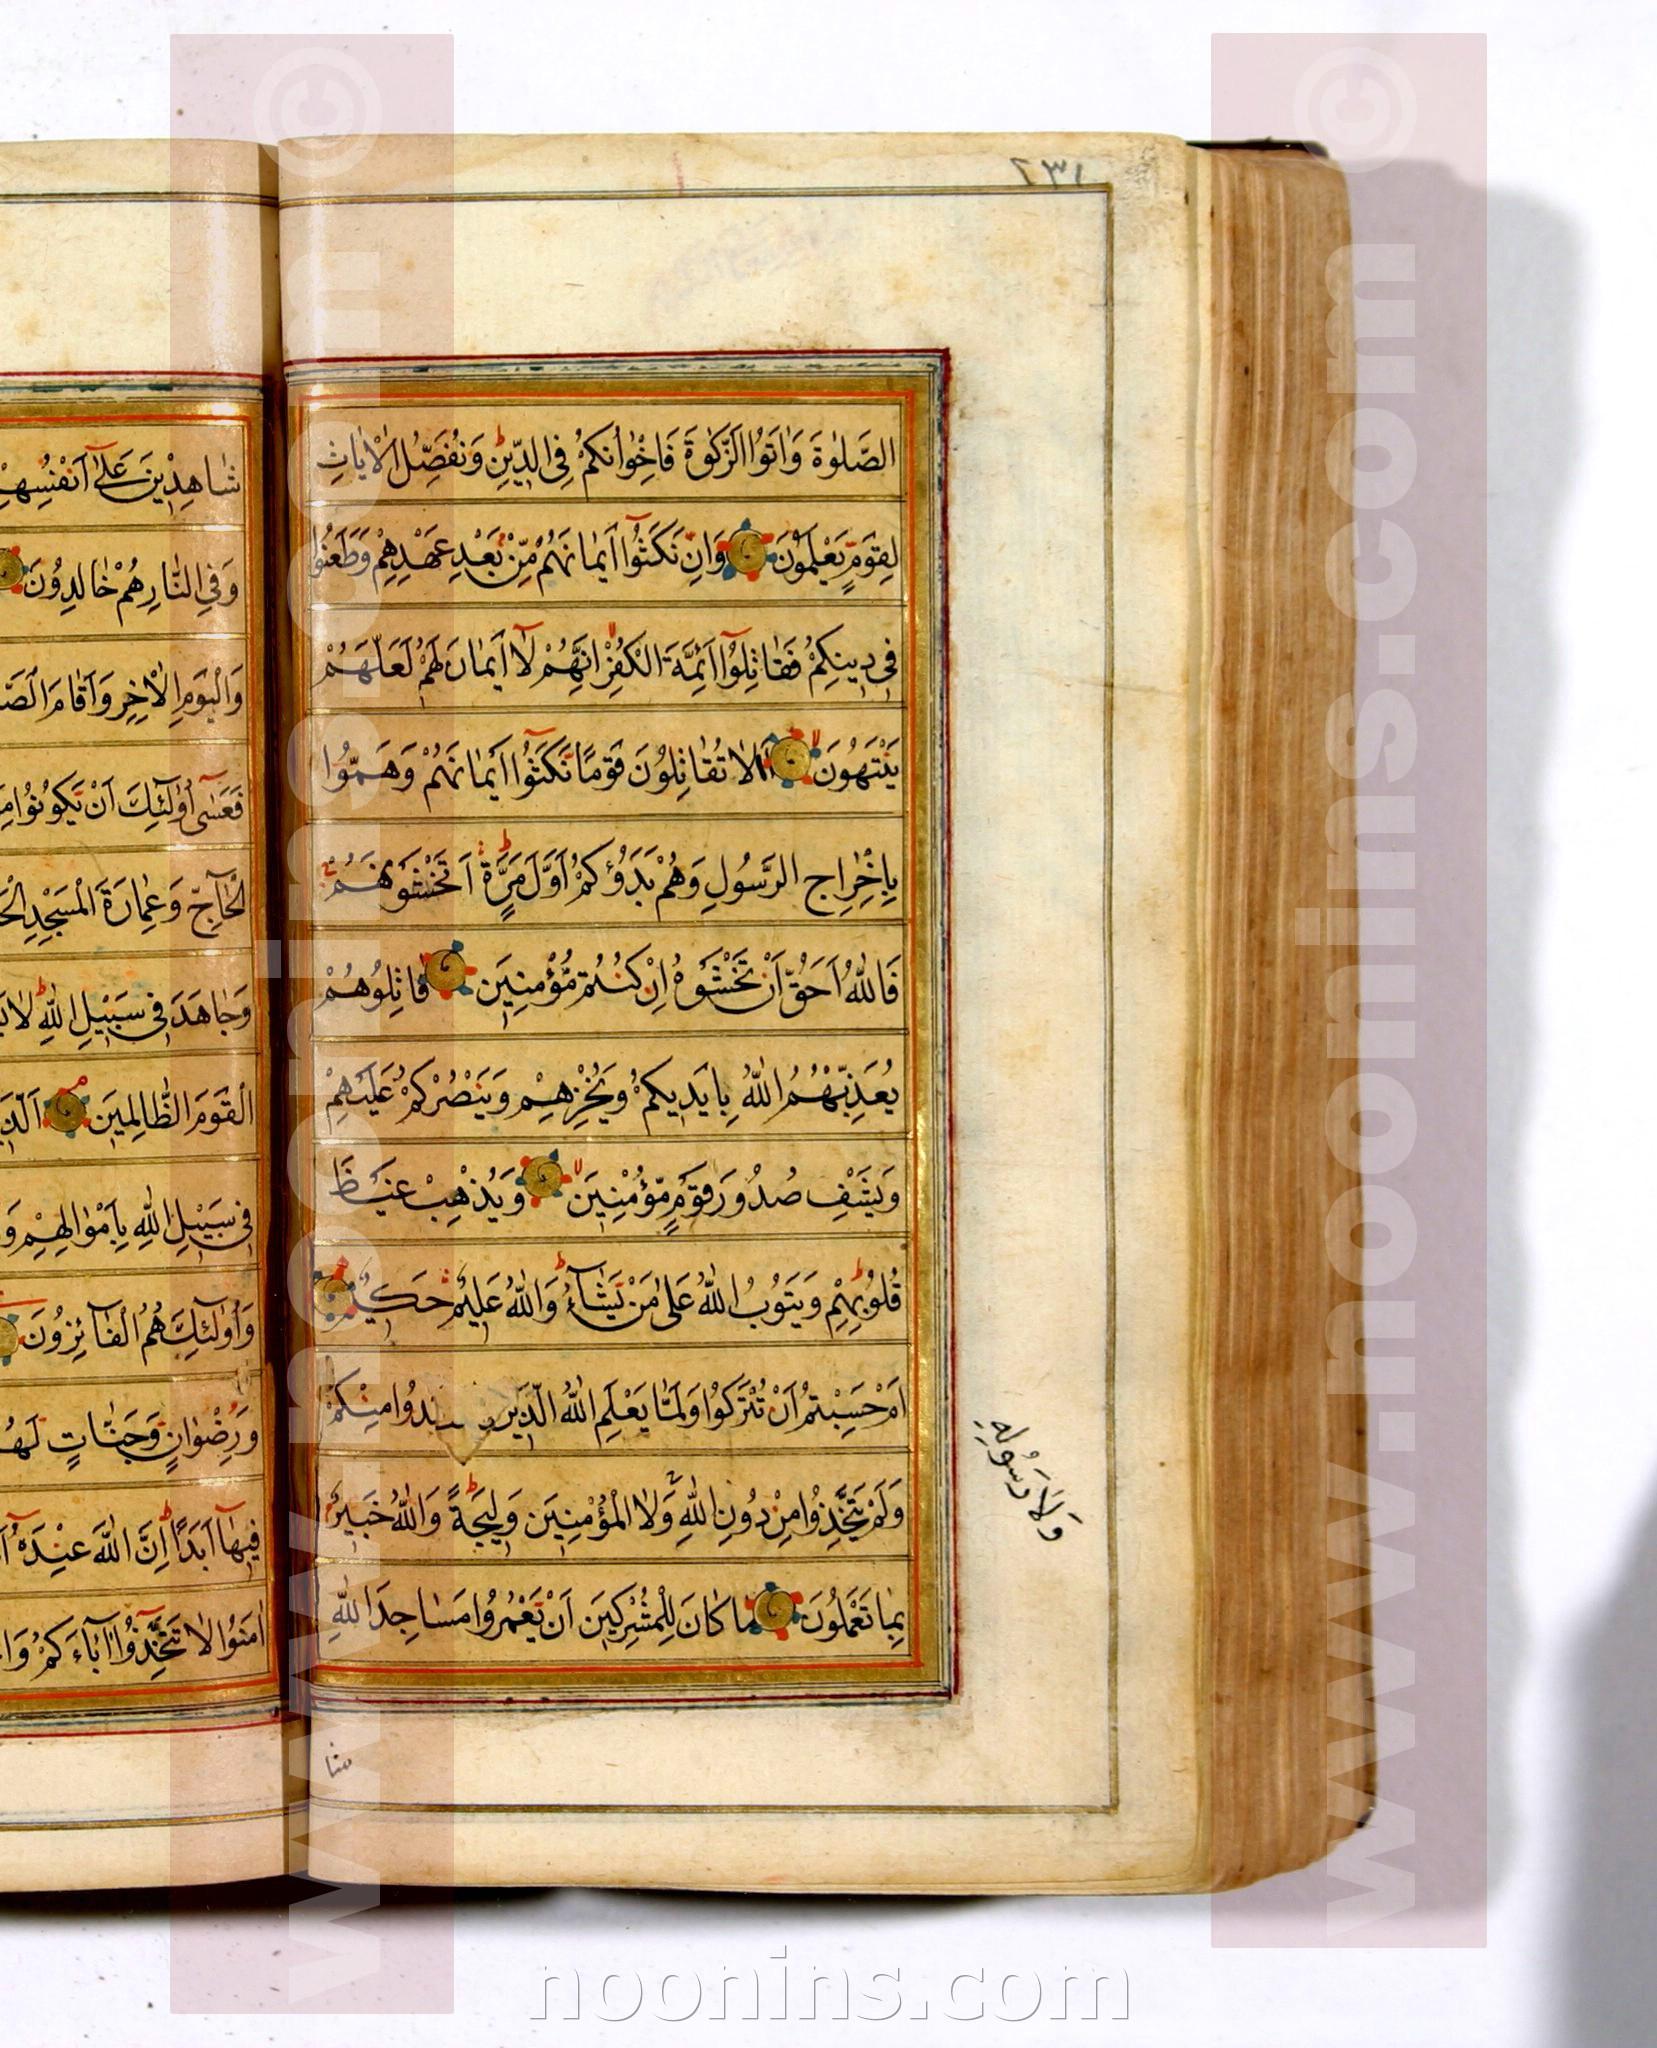 ٢٣١
الصَّلٰوةَ وَاٰتَوُا الزَّكٰوةَ فَاِخْوٰانُكُمْ فِي الدِّيْنِ وَنُفَصِّلُ الْاٰيٰاتِ
لِقَوْمٍ يَعْلَمُوْنَ وَاِنْ نَكَثُوْٓا اَيْمٰانَهُمْ مِّنْ بَعْدِ عَهْدِهِمْ وَطَعَنُوْا
فِي دِينِكُمْ فَقٰاتِلُوْٓا اَئِمَّةَ الْكُفْرِ اِنَّهُمْ لٰٓا اَيْمٰانَ لَهُمْ لَعَلَّهُمْ
يَنْتَهُوْنَ اَلٰا تُقٰاتِلُوْنَ قَوْمًا نَّكَثُوْٓا اَيْمٰانَهُمْ وَهَمُّوْا
بِاِخْرٰاجِ الرَّسُوْلِ وَهُمْ بَدَؤُكُمْ اَوَّلَ مَرَّةٍ اَتَخْشَوْنَهُمْ
فَاللّٰهُ اَحَقُّ اَنْ تَخْشَوْهُ اِنْ كُنْتُمْ مُّؤْمِنِيْنَ قٰاتِلُوْهُمْ
يُعَذِّبْهُمُ اللّٰهُ بِاَيْدِيكُمْ وَيُخْزِهِمْ وَيَنْصُرْكُمْ عَلَيْهِمْ
وَيَشْفِ صُدُوْرَ قَوْمٍ مُّؤْمِنِيْنَ وَيُذْهِبْ غَيْظَ
قُلُوْبِهِمْ وَيَتُوْبُ اللّٰهُ عَلٰى مَنْ يَّشٰٓاءُ وَاللّٰهُ عَلِيْمٌ حَكِيْمٌ
اَمْ حَسِبْتُمْ اَنْ تُتْرَكُوْا وَلَمّٰا يَعْلَمِ اللّٰهُ الَّذِيْنَ هِدُوْا مِنْكُمْ
وَلَمْ يَتَّخِذُوْا مِنْ دُوْنِ اللّٰهِ وَلَا الْمُؤْمِنِيْنَ وَلِيْجَةً وَاللّٰهُ خَبِيْرٌ
وَلَا رَسُوْلِهِ
بِمٰا تَعْمَلُوْنَ مٰا كٰانَ لِلْمُشْرِكِيْنَ اَنْ يَعْمُرُوْا مَسٰاجِدَ اللّٰهِ
شٰا
شٰاهِدِيْنَ عَلٰٓى اَنْفُسِهِمْ
وَفِي النّٰارِ هُمْ خٰالِدُوْنَ
وَالْيَوْمِ الْاٰخِرِ وَاَقٰامَ الصَّ
فَعَسٰٓى اُولٰٓئِكَ اَنْ يَّكُوْنُوْا مِ
الْحٰٓاجِّ وَعِمٰارَةَ الْمَسْجِدِ الْحَ
وَجٰاهَدَ فِي سَبِيْلِ اللّٰهِ لٰا يَ
الْقَوْمَ الظّٰالِمِيْنَ اَلَّذِي
فِي سَبِيْلِ اللّٰهِ بِاَمْوٰالِهِمْ وَ
وَاُولٰٓئِكَ هُمُ الْفٰٓائِزُوْنَ
وَرِضْوٰانٍ وَّجَنّٰاتٍ لَهُ
فِيْهٰٓا اَبَدًا اِنَّ اللّٰهَ عِنْدَهُ
اٰمَنُوْا لٰا تَتَّخِذُوْٓا اٰبٰٓاءَكُمْ وَا
www.noonins.com ©
www.noonins.com ©
noonins.com